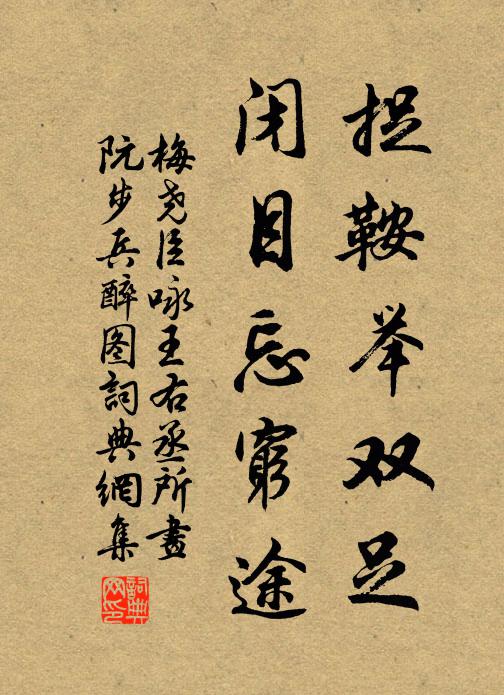 捉鞍举双足
闭目忘窮途
梅尧臣咏王右丞所畫
阮步兵醉图詞典網集
詞典网印